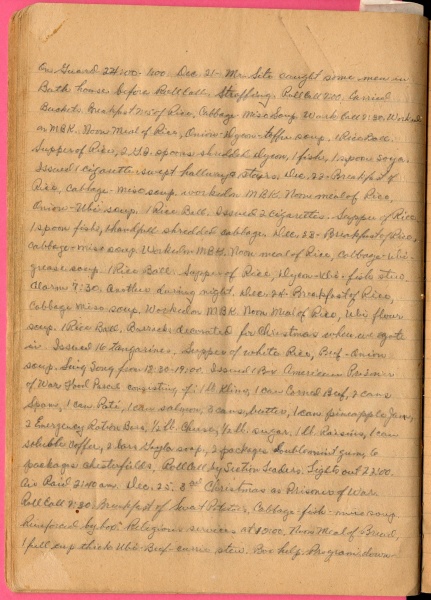 On Guard 24:00 - 1:00. Dec. 21 - Mr. Sito caught some men in
Bath house before Roll Call. Roll Call 7:00. Carried
Buckets. Breakfast of Rice, Cabbage Miso Soup. Work Call 7:30. Worked
on MBK. Noon Meal of Rice, Onion-Dycon-toffu soup. 1 Rice Ball.
Supper of Rice, 2 spoons shredded Dycon, 1 fish, 1 spoon soya.
Issued 1 cigarette. Swept hallway & stairs. Dec. 22 - Breakfast of
Rice, Cabbage - miso soup. Worked on MBK. Noon meal of Rice,
Onion - Ubi soup. 1 Rice Ball. Issued 2 cigarettes. Supper of Rice,
1 spoon fish, 1 handful shredded cabbage. Dec. 23 - Breakfast of Rice,
Cabbage - miso soup. Worked on MBK. Noon meal of Rice, Cabbage - Ubi -
grease soup. 1 Rice Ball. Supper of Rice, Dycon - Ubi - fish stew.
Alarm 7:30, another during night. Dec. 24 - Breakfast of Rice,
Cabbage miso soup. Worked on MBK. Noon Meal of Rice, Ubi flour
soup. 1 Rice Ball. Barracks decorated for Christmas when we got
in. Issued 16 tangarines. Supper of white Rice, Beef - Onion
soup. Sing Song from 18:30 - 19:00. Issued 1 Box American Prisoner
of War Food Parcel consisting of: 1 lb. Klim, 1 can Corned Beef, 2 cans
Spam, 1 can Paté, 1 can salmon, 3 cans butter, 1 can pineapple Jam,
2 Emergency Ration Bars, ½ lb. Cheese, ½ lb. sugar, 1 lb. Raisins, 1 can
soluble Coffee, 2 bars soap, 2 packages gum, 6
packages chesterfields. Roll Call by Section Leaders. Lights out 22:00.
Air Raid 2:40 am. Dec. 25. 3rd Christmas as Prisoner of War.
Roll Call 7:30. Breakfast of Sweet Potatoes, Cabbage - fish - miso soup
Reinforced by box. Religious services at 10:00. Noon Meal of Bread,
1 full cup thick Ubi - Beef - curry stew. Box help. Program down-